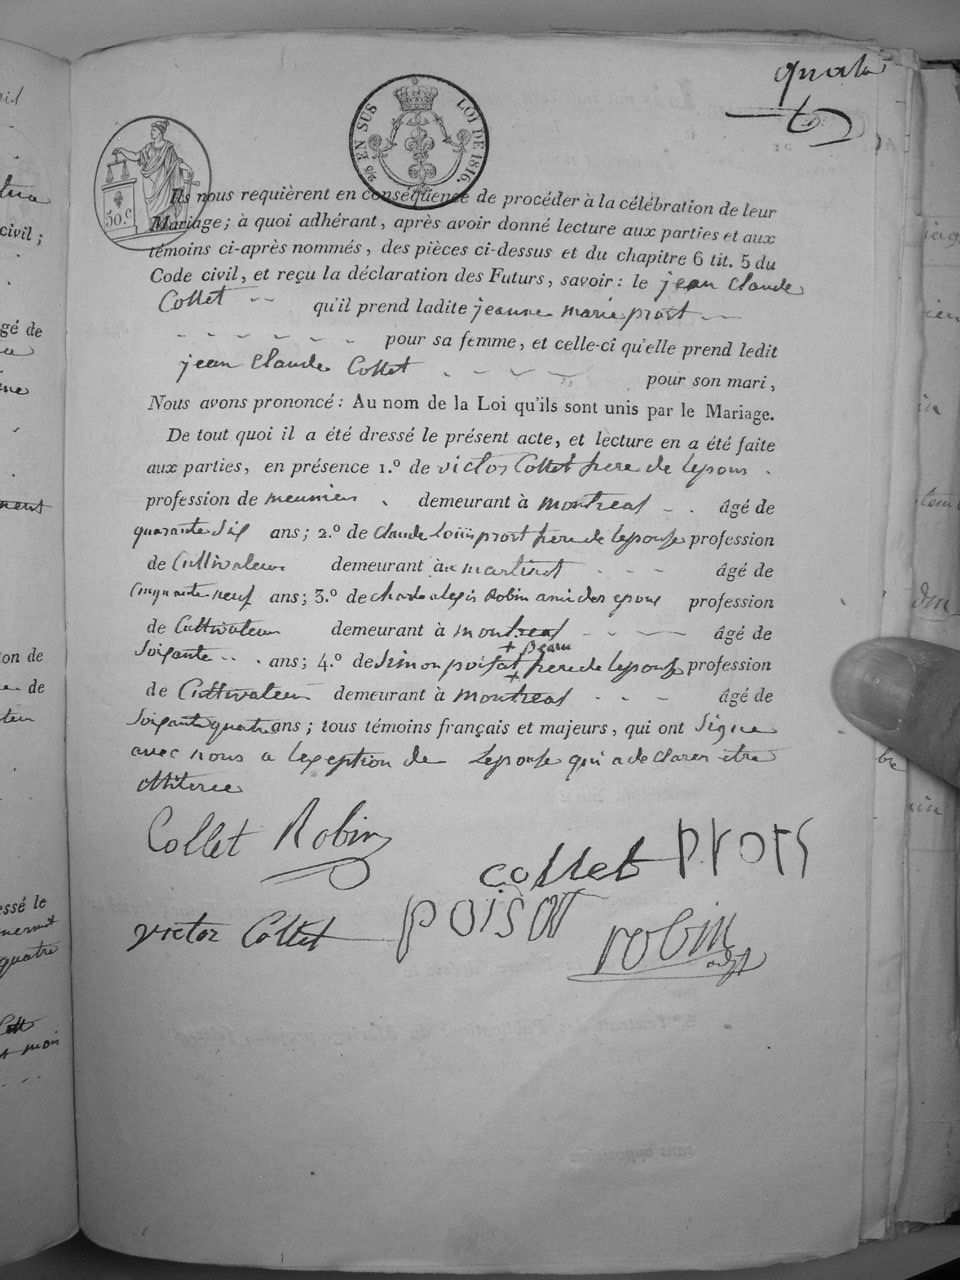 quatre
25 EN SUS LOI DE 1816.
50.c
Ils nous requièrent en conséquence de procéder à la célébration de leur
Mariage; à quoi adhérant, après avoir donné lecture aux parties et aux
témoins ci-après nommés, des pièces ci-dessus et du chapitre 6 tit. 5 du
Code civil, et reçu la déclaration des Futurs, savoir: le jean Claude
Collet qu'il prend ladite jeanne marie prost
pour sa femme, et celle-ci qu'elle prend ledit
jean Claude Collet pour son mari,
Nous avons prononcé: Au nom de la Loi qu'ils sont unis par le Mariage.
De tout quoi il a été dressé le présent acte, et lecture en a été faite
aux parties, en présence 1.º de victor Collet frere de lepoux
profession de meunier demeurant à montreal âgé de
quarante six ans; 2.º de Claude prost pere de lepouse profession
de Cultivateur demeurant au martinet âgé de
Cinquante neuf ans; 3.º de charle alexis Robin ami des epoux profession
de Cultivateur demeurant à montreal âgé de
+ beau
soixante ans; 4.º de Simon poisat + frere de lepouse profession
de Cultivateur demeurant à montreal âgé de
soixante quatre ans; tous témoins français et majeurs, qui ont signe
avec nous a lexeption de Lepouse qui a declarer etre
illiteree
Collet Robin
collet prost
victor Collet poisat robin
civil;
gé de
ion de
de
essé le
quatre